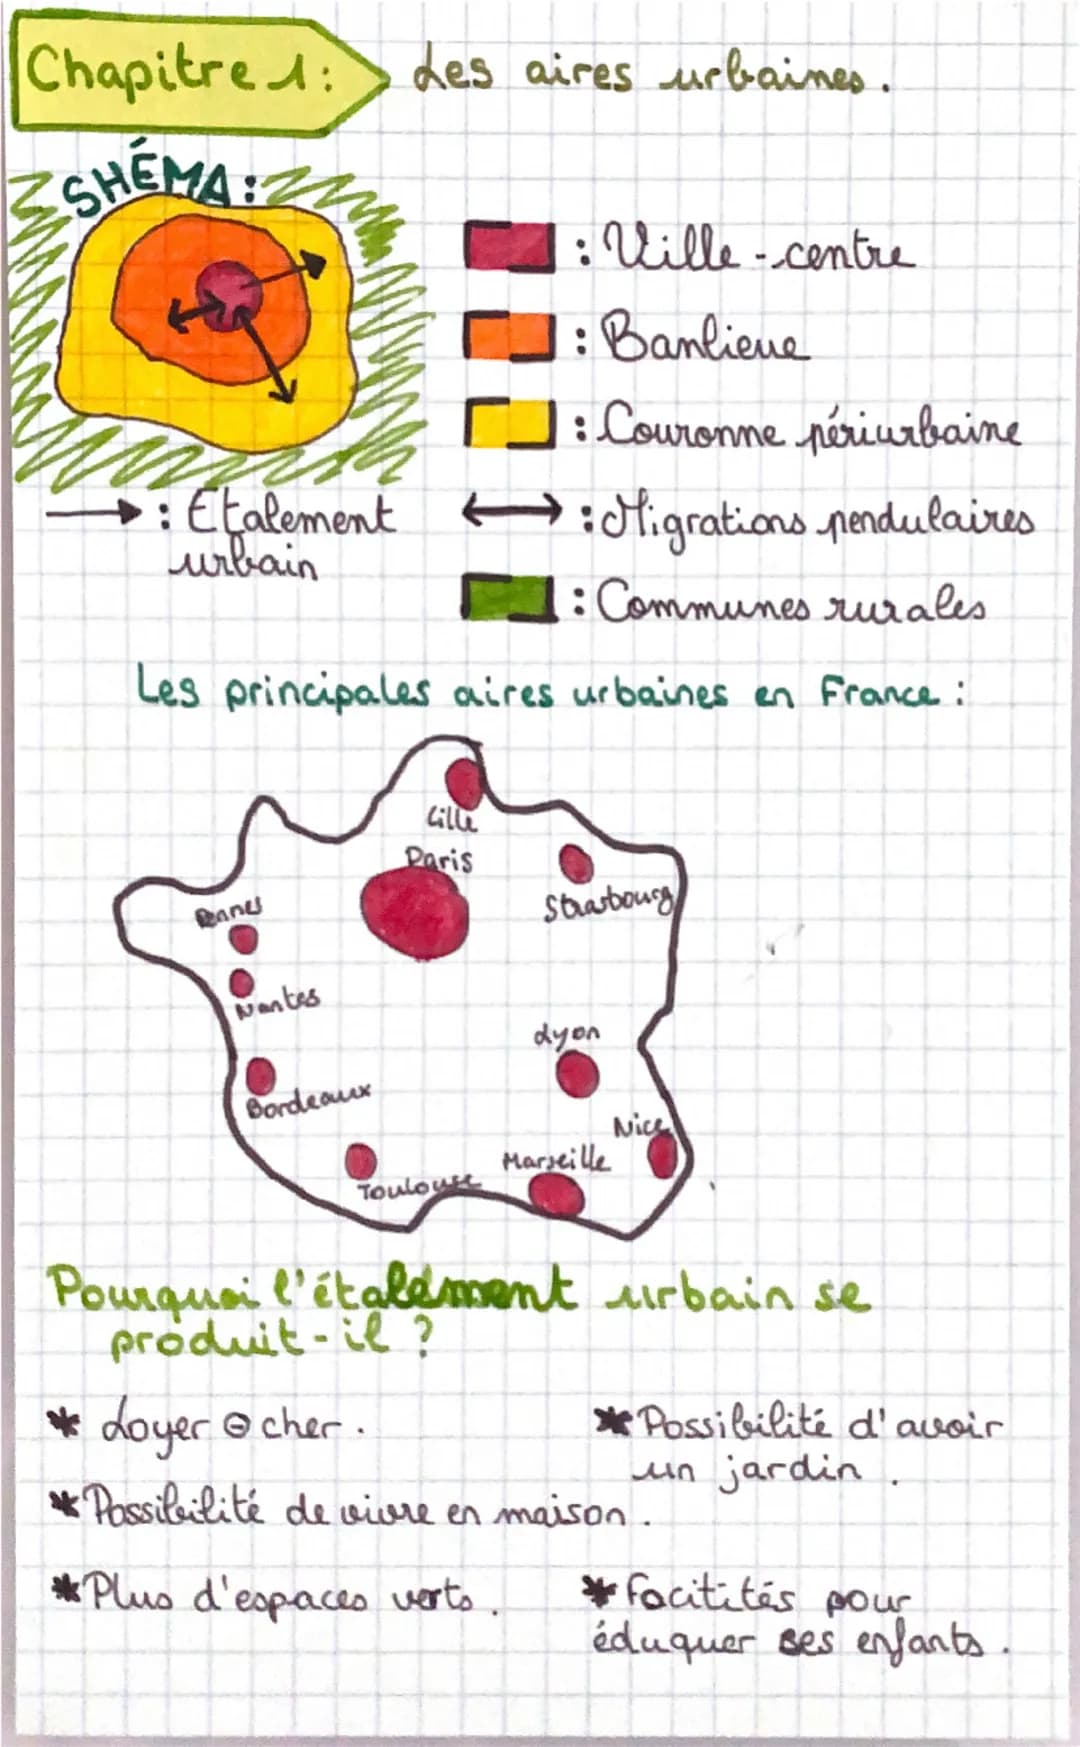 Chapitre 1 : Les aires urbaines.
SHÉMA :
: Ville-centre
: Banlieue
: Couronne périurbaine
: Etalement
urbain
: Migrations pendulaires
: Communes rurales
Les principales aires urbaines en France :
Lille
Paris
Strasbourg
Rennes
Nantes
Lyon
Bordeaux
Nice
Marseille
Toulouse
Pourquoi l'étalement urbain se
produit-il ?
* Loyer ⊖ cher.
* Possibilité d'avoir
un jardin.
* Possibilité de vivre en maison.
* Plus d'espaces verts.
* Facitités pour
éduquer ses enfants.